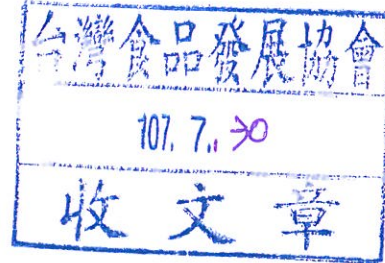 台灣食品發展協會
107. 7. 30
收文章